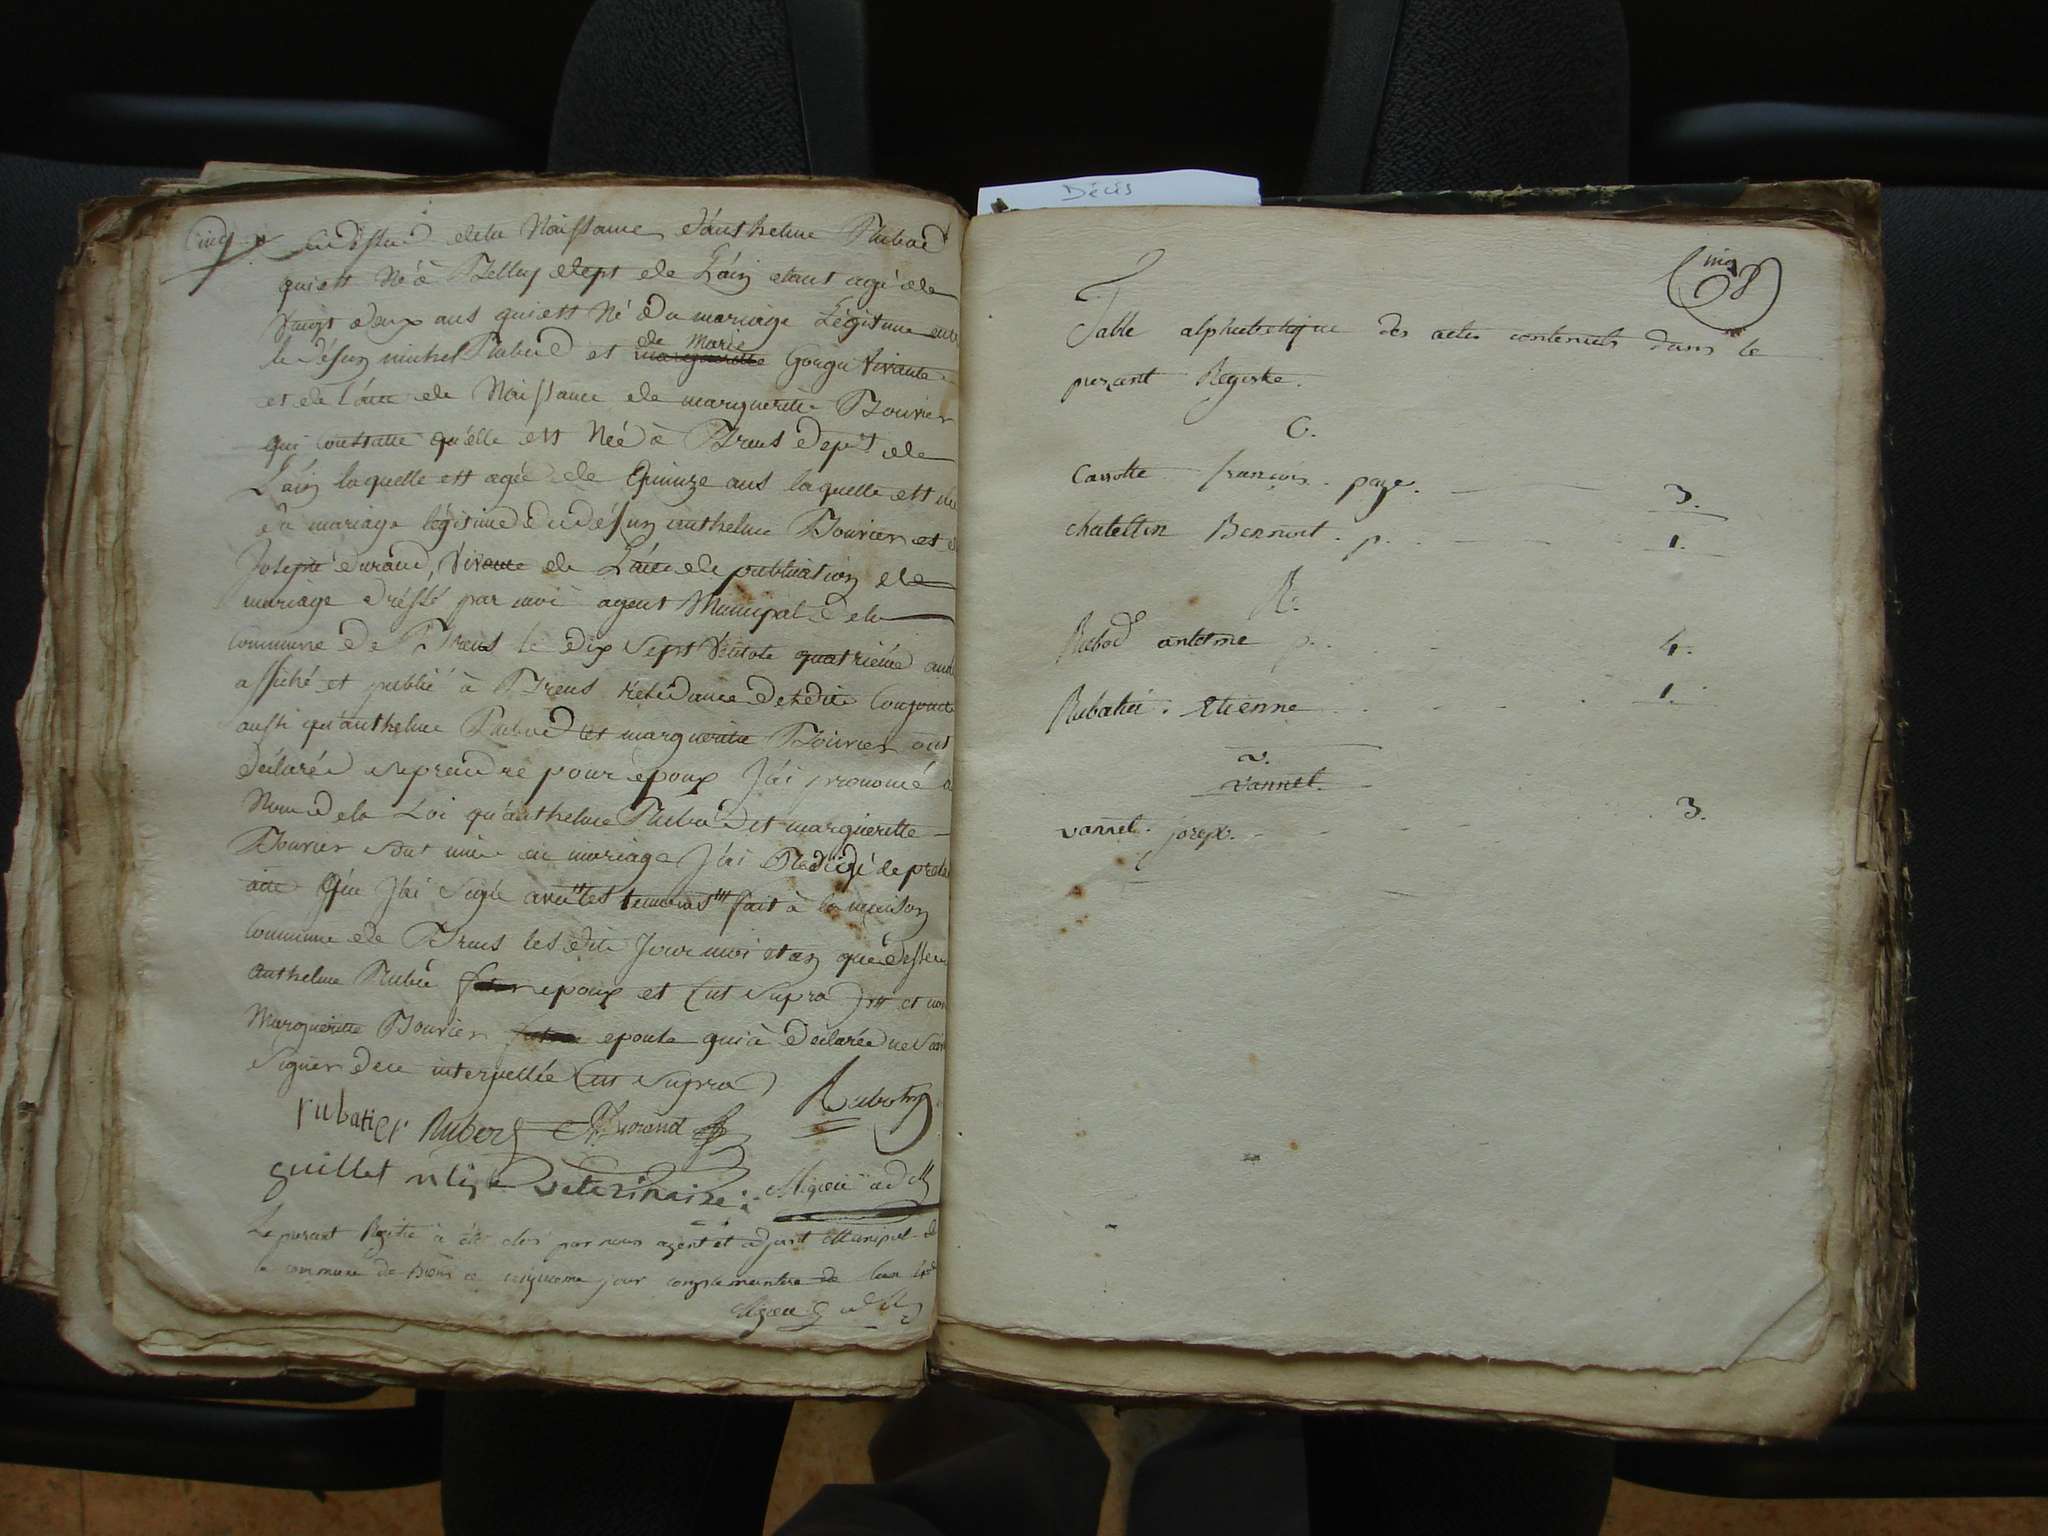 Cinq
de la Naissance d'anthelme Rubod
qui est Né à Belley dept de L'ain etant agé de
Vingt deux ans qui est Né du mariage Légitime entre
le défun michel Rubod et de Marie marguerite Gougu Vivante
et de L'acte de Naissance de marguerite Bouvier
qui constate qu'elle est Née à Brens dep't de
L'ain laquelle est agée de Quinze ans laquelle est
du mariage légitime du défun anthelme Bouvier et
Josepte durand, Vivante de L'acte de publication de
mariage dréssé par moi agent Municipal de la
Commune de Brens le dix sept Vetôse quatriéme
affiché et publié à Brens résidance desdits Conjoints
aussi qu'anthelme Rubod et marguerite Bouvier ont
déclaréd se prendre pour époux J'ai prononcé
Nom de la Loi qu'anthelme Rubod et marguerite
Bouvier sont unie en mariage J'ai Rédigé le présent
acte Que J'ai Signé avec les temoins fait à la maison
Commune de Brens les dits Jour moi et an que dessus
anthelme Rubod époux et (ut Supra) et non
Marguerite Bouvier epouse qui à déclarée ne Savoir
Signer de ce interpellée (ut Supra)
rubatier Rubod Durand
guillet veterinaire
Le present Registre à été clos par nous agent et adjoint Municipal de
la commune de Brens ce cinquieme jour complementaire de l'an
Décès
Cinq
58
Table alphabetique des actes contenuts dans le
present Registre.
C.
Carrotte françois. page. 3.
chatellin Bennoit. p. 1.
R.
Rubod antelme p. 4.
Rubatier. Etienne 1.
v.
vannel.
vannel. joseph. 3.